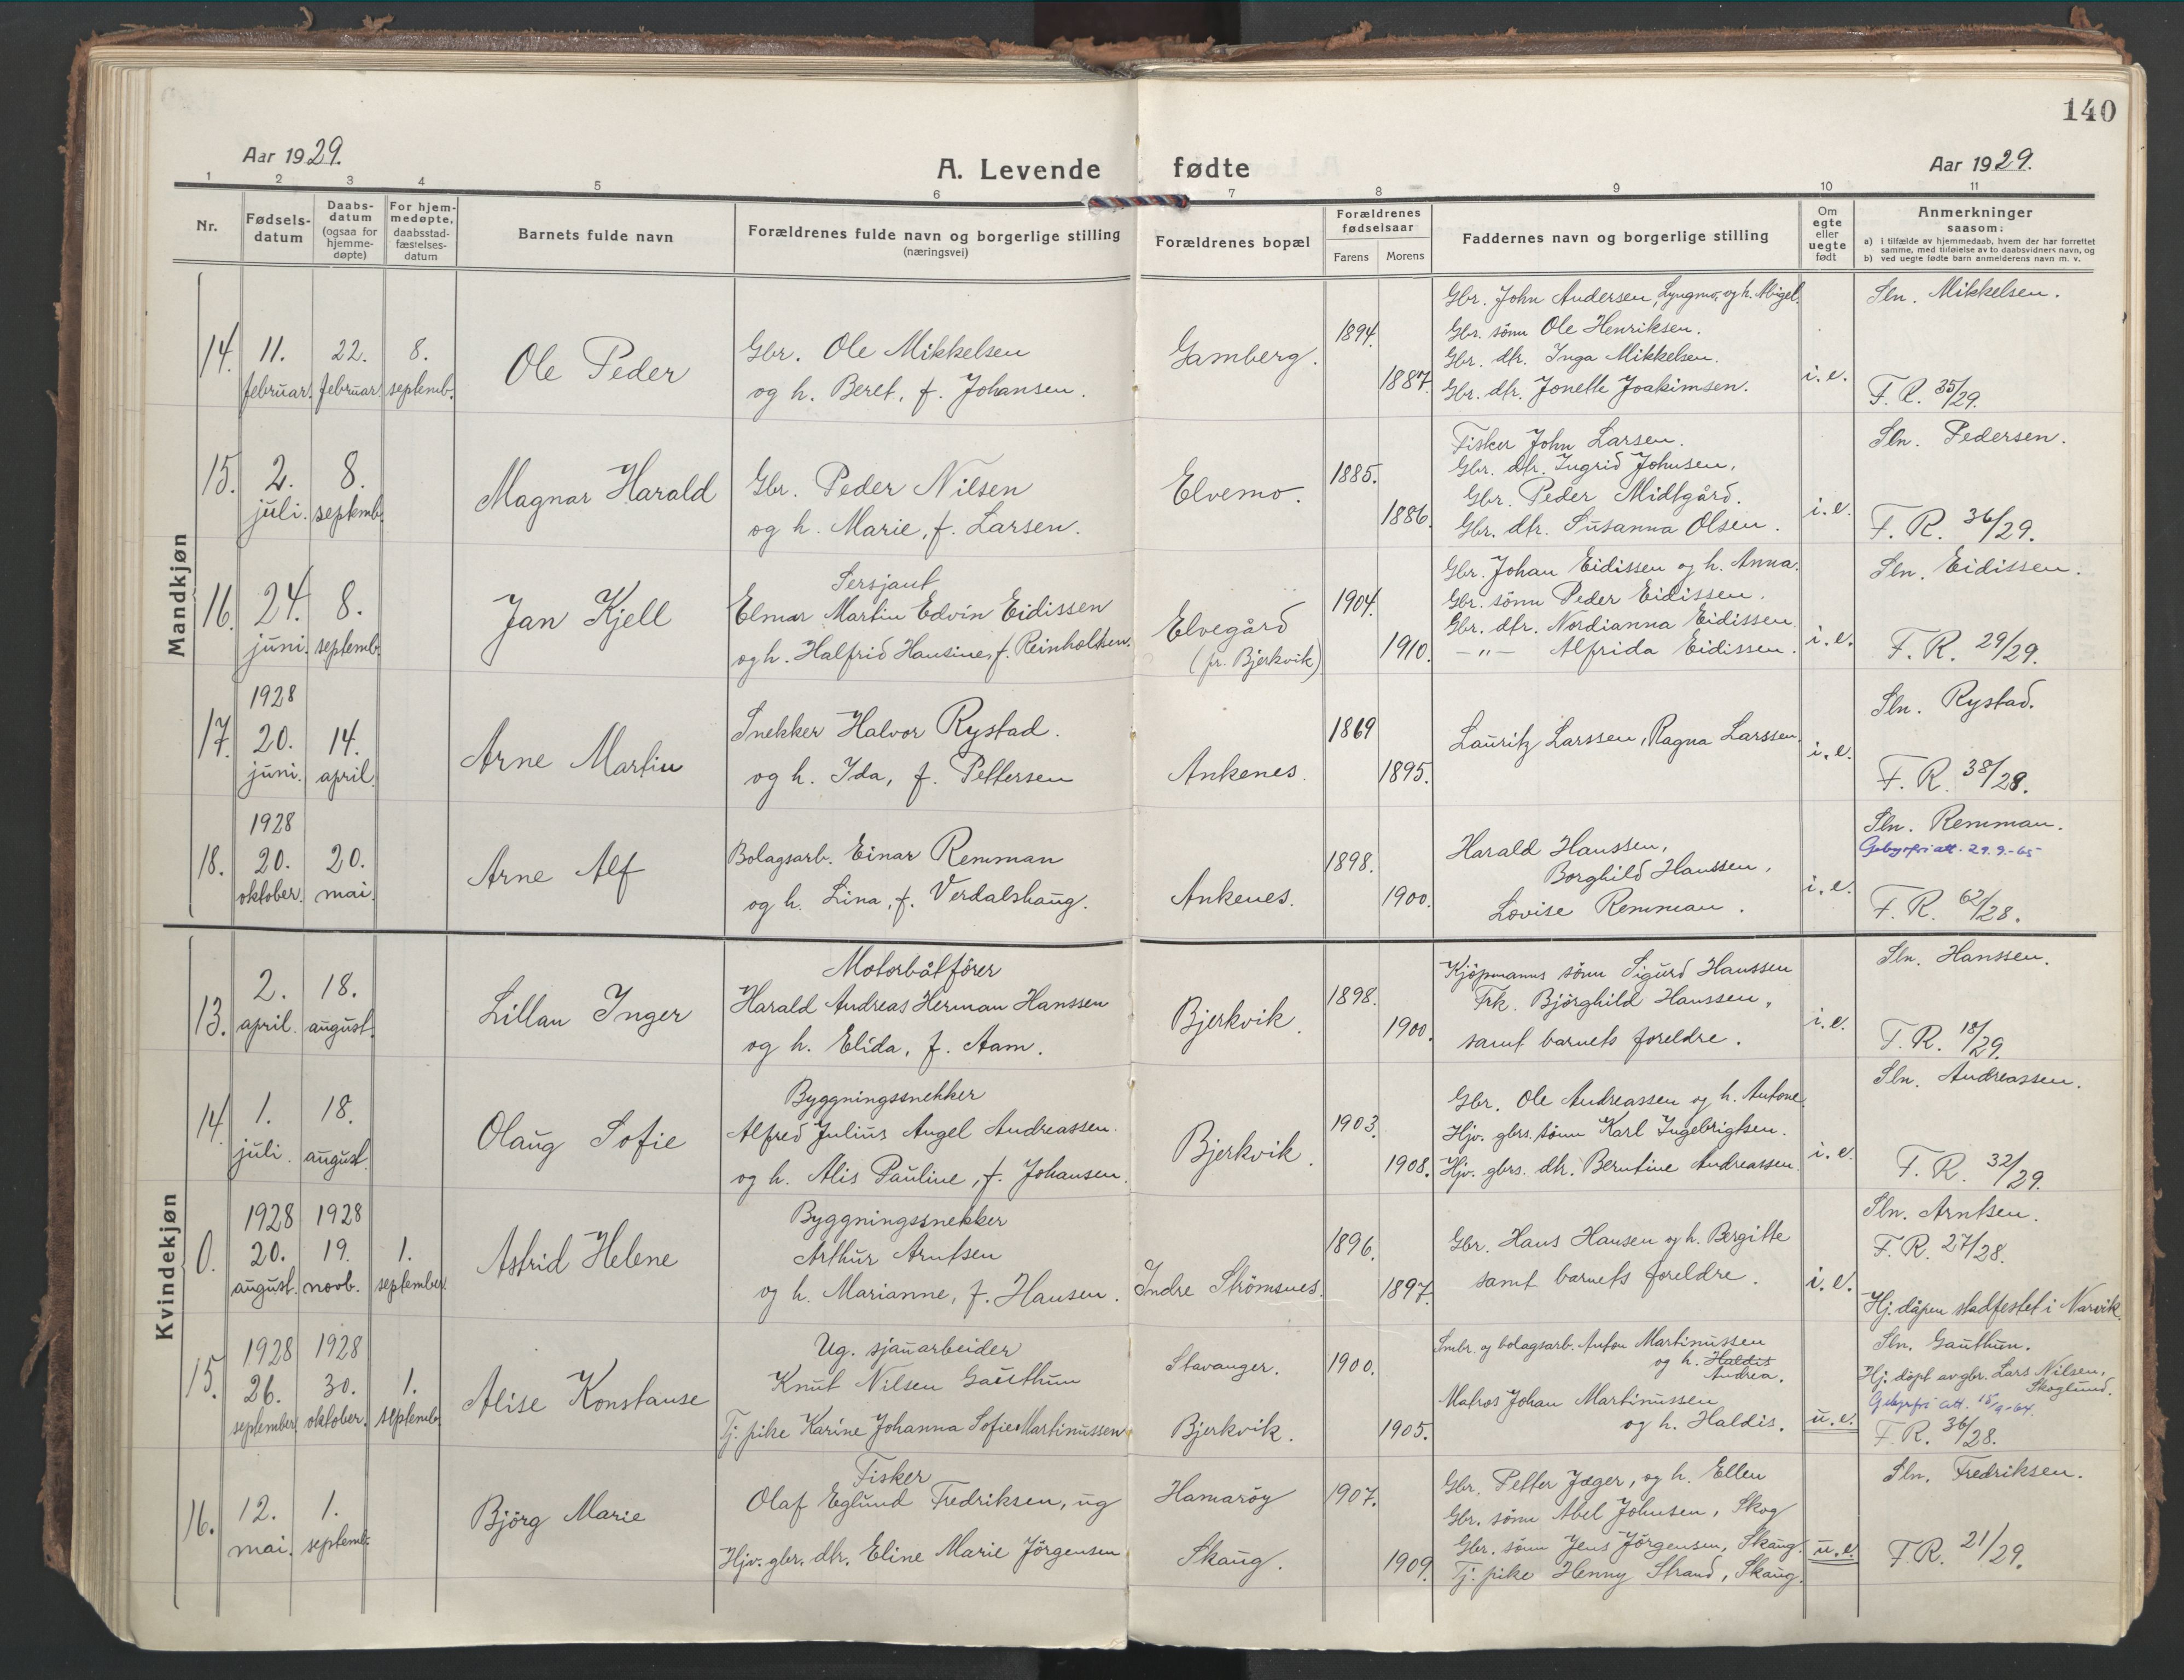 140
Aar 1929.
A. Levende fødte
Aar 1929.
1 2 3 4 5 6 7 8 9 10 11
Nr.
Fødsels-
datum
Daabs-
datum
(ogsaa for
hjemme-
døpte)
For hjem-
medøpte,
daabsstad-
fæstelses-
datum
Barnets fulde navn
Forældrenes fulde navn og borgerlige stilling
(næringsvei)
Forældrenes bopæl
Forældrenes
fødselsaar
Farens Morens
Faddernes navn og borgerlige stilling
Om
egte
eller
uegte
født
Anmerkninger
saasom:
a) i tilfælde av hjemmedaab, hvem der har forrettet
samme, med tilføielse av to daabsvidners navn, og
b) ved uegte fødte barn anmelderens navn m. v.
Mandkjøn
14. 11. februar. 22. februar. 8. septemb.
Ole Peder
Gbr. Ole Mikkelsen
og h. Beret, f. Johansen.
Gamberg.
1894.
1887.
Gbr. John Andersen, Lyngmo, og h. Abigel.
Gbr. sönn Ole Henriksen.
Gbr. dtr. Inga Mikkelsen.
Gbr. dtr. Jonette Joakimsen.
i.e.
Sln. Mikkelsen.
F. R. 35/29.
15. 2. juli. 8. septemb.
Magnar Harald
Gbr. Peder Nilsen
og h. Marie, f. Larsen.
Elvemo.
1885.
1886.
Fisker John Larsen.
Gbr. dtr. Ingrid Johnsen,
Gbr. Peder Midtgård.
Gbr. dtr. Susanna Olsen.
i.e.
Sln. Pedersen.
F. R. 36/29.
16. 24. juni. 8. septemb.
Jan Kjell
Sersjant
Elmar Martin Edvin Eidissen
og h. Halfrid Hansine, f. Reinholtsen.
Elvegård
(pr. Bjerkvik)
1904.
1910.
Gbr. Johan Eidissen og h. Anna.
Gbr. sönn Peder Eidissen.
Gbr. dtr. Nordianna Eidissen.
—"— Alfrida Eidissen.
i.e.
Sln. Eidissen.
F. R. 29/29.
17. 1928 20. juni. 14. april.
Arne Martin
Snekker Halvor Rystad.
og h. Ida, f. Pettersen
Ankenes.
1869
1895.
Lauritz Larssen, Ragna Larssen.
i.e.
Sln. Rystad.
F. R. 38/28.
18. 1928 20. oktober. 20. mai.
Arne Alf
Bolagsarb. Einar Remman
og h. Lina, f. Verdalshaug.
Ankenes.
1898.
1900.
Harald Hanssen,
Borghild Hanssen,
Lovise Remman.
i.e.
Sln. Remman.
Gebyrfri att. 29.9.-65
F. R. 62/28.
Kvindekjøn
13. 2. april. 18. august.
Lillan Inger
Motorbåtförer
Harald Andreas Herman Hanssen
og h. Elida, f. Aam.
Bjerkvik.
1898.
1900.
Kjöpmanns sönn Sigurd Hanssen
Frk. Björghild Hanssen,
samt barnets foreldre.
i.e.
Sln. Hanssen.
F. R. 18/29.
14. 1. juli. 18. august.
Olaug Sofie
Byggningssnekker
Alfred Julius Angel Andreassen.
og h. Alis Pauline, f. Johansen.
Bjerkvik.
1903.
1908.
Gbr. Ole Andreassen og h. Antone.
Hjv. gbrs. sönn Karl Ingebrigtsen.
Hjv. gbrs. dtr. Berntine Andreassen.
i.e.
Sln. Andreassen.
F. R. 32/29.
0. 1928 20. august. 1928 19. novb. 1. september.
Astrid Helene
Byggningssnekker
Arthur Arntsen
og h. Marianne, f. Hansen.
Indre Strömsnes.
1896.
1897.
Gbr. Hans Hansen og h. Bergitte
samt barnets foreldre.
i.e.
Sln. Arntsen.
F. R. 27/28.
Hj. dåpen stadfestet i Narvik.
15. 1928 26. september. 1928 30. oktober. 1. septemb.
Alise Konstanse
Ug. sjauarbeider
Knut Nilsen Gauthun
Tj. pike Karine Johanna Sofie Martinussen
Stavanger.
Bjerkvik.
1900.
1905.
Smbr. og bolagsarb. Anton Martinussen
og h. Haldis
Andrea.
Matros Johan Martinussen
og h. Haldis.
u.e.
Sln. Gauthun.
Hj. döpt av gbr. Lars Nilsen,
Skoglund.
Gebyrfri att. 15/9-64.
F. R. 36/28.
16. 12. mai. 1. septemb.
Björg Marie
Fisker
Olaf Eglund Fredriksen, ug
Hjv. gbr. dtr. Eline Marie Jörgensen
Hamaröy
Skaug.
1907.
1909.
Gbr. Petter Jæger, og h. Ellen
Gbr. sönn Abel Johnsen, Skog
Gbr. sönn Jens Jörgensen, Skaug.
Tj. pike Henny Strand, Skaug.
u.e.
Sln. Fredriksen.
F. R. 21/29.